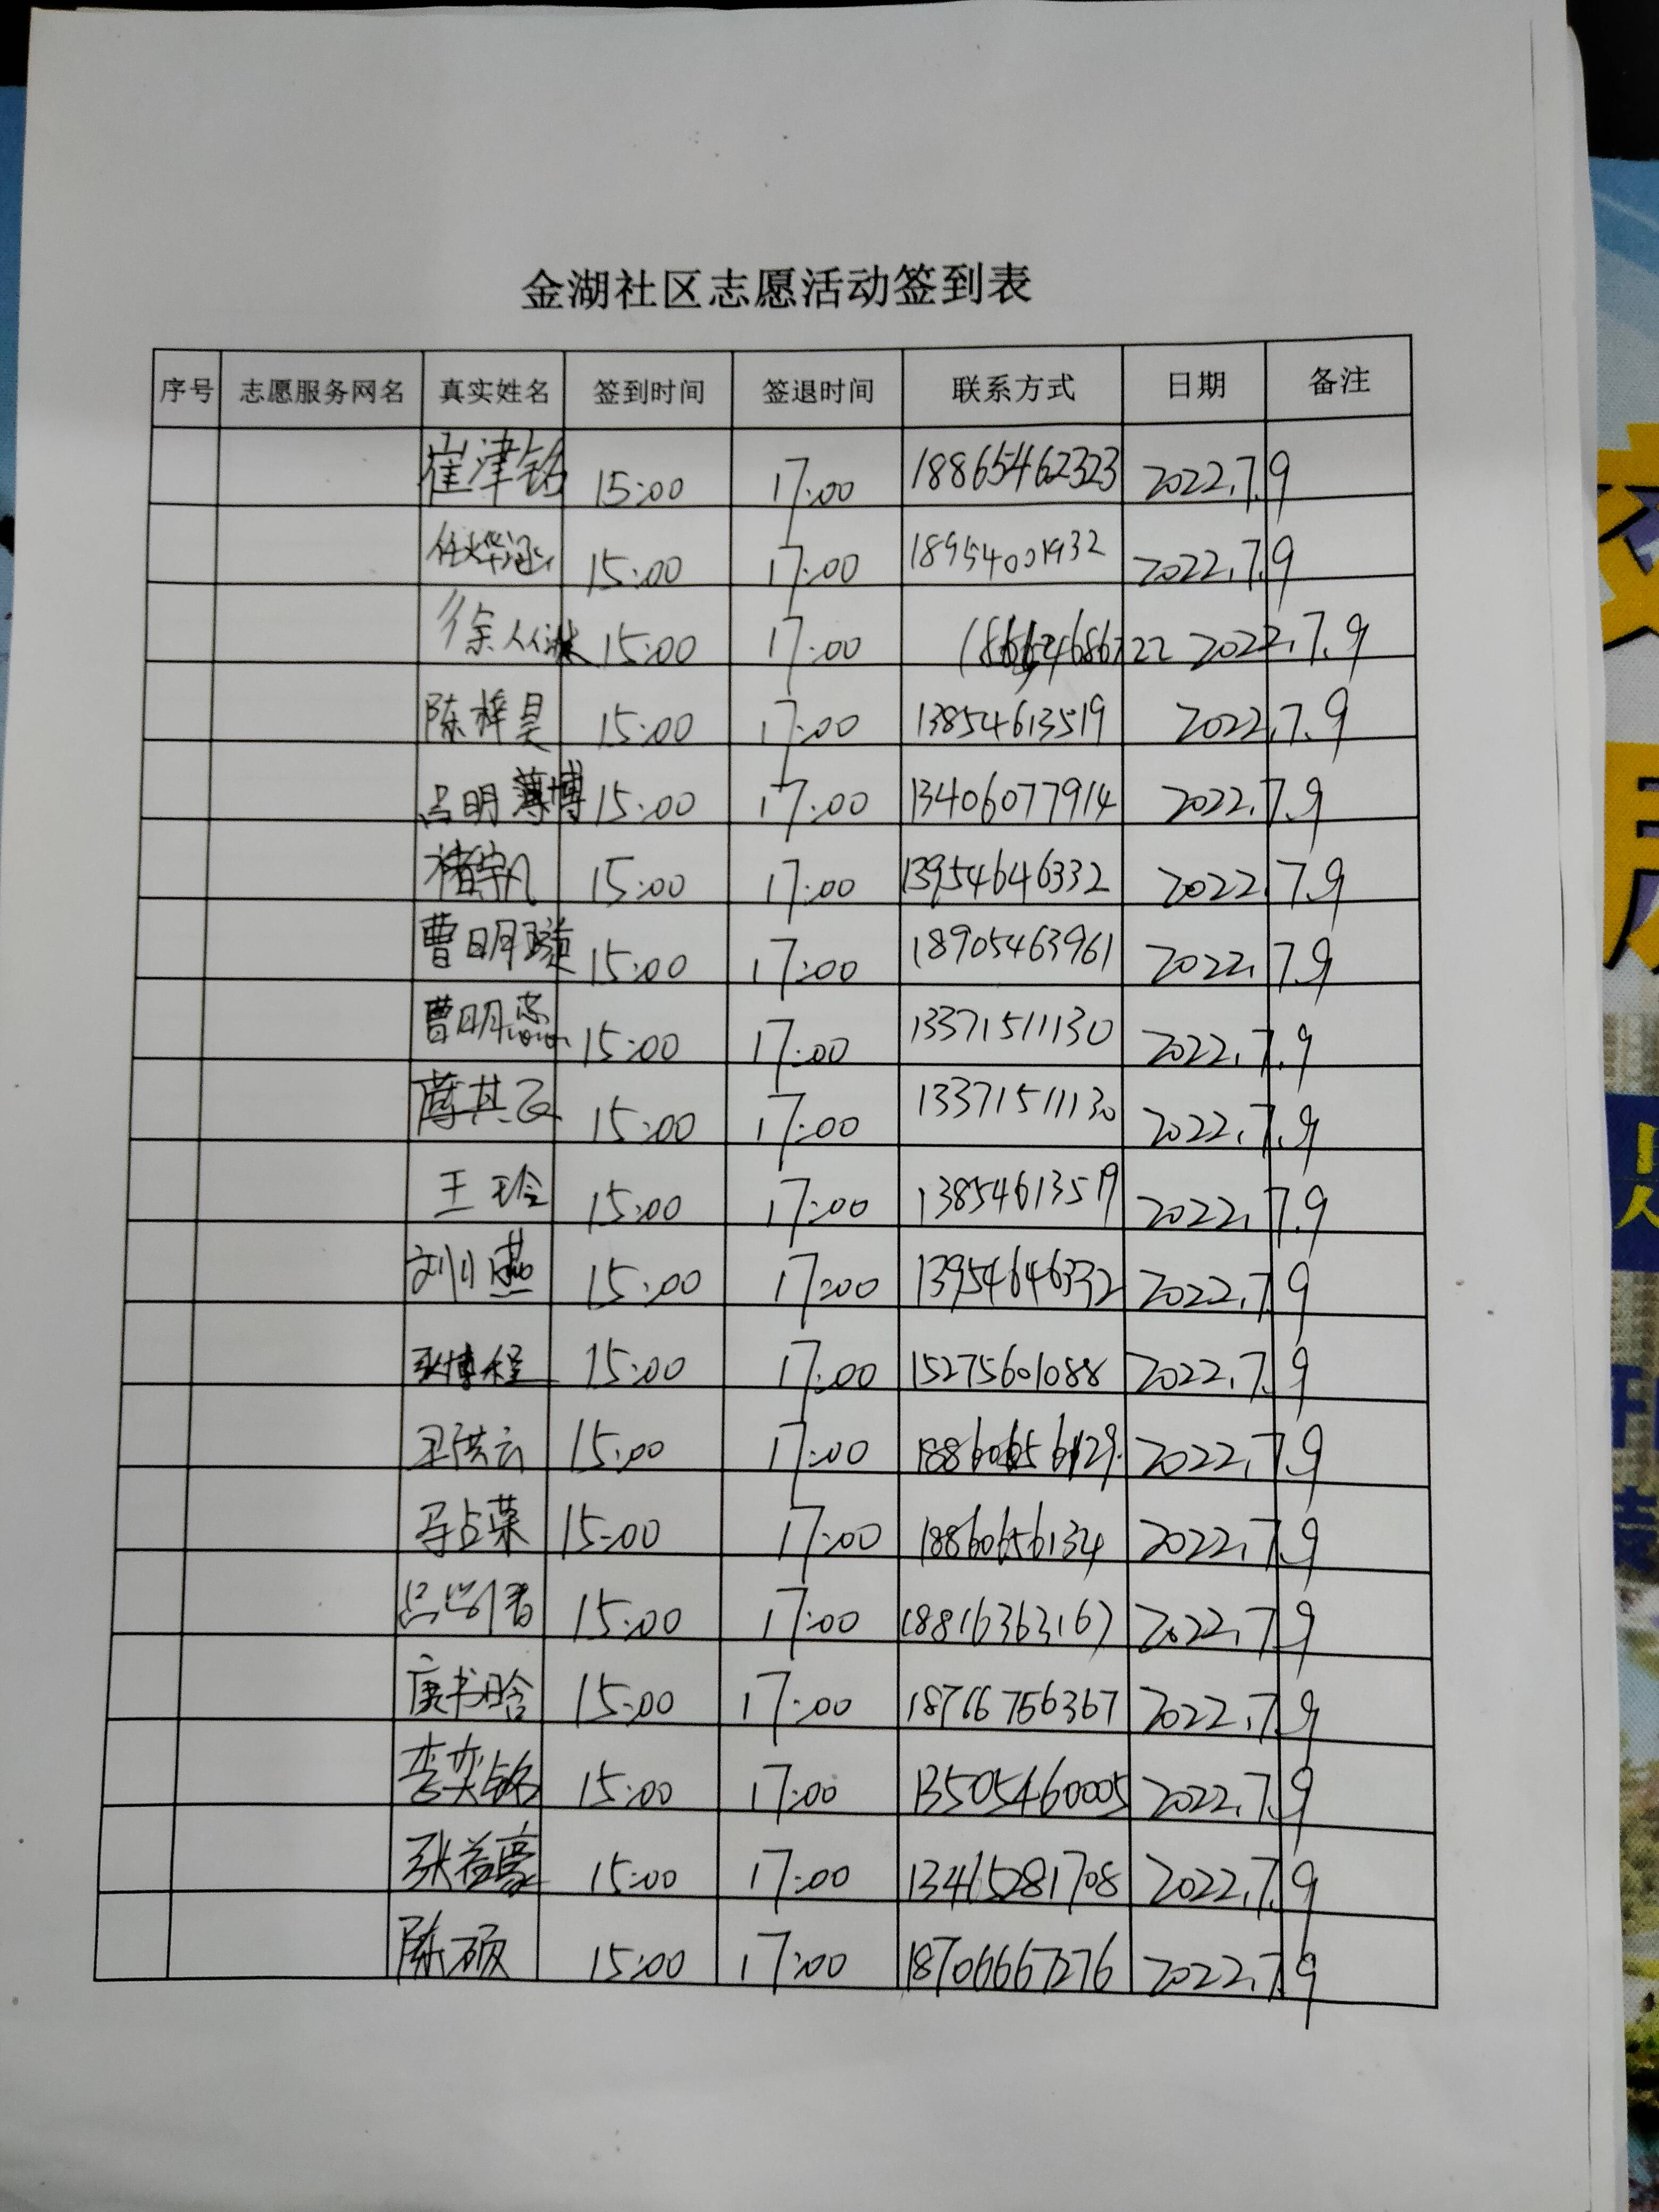 金湖社区志愿活动签到表
序号 志愿服务网名 真实姓名 签到时间 签退时间 联系方式 日期 备注
崔津铭 15:00 17:00 18865462323 2022.7.9
任烨涵 15:00 17:00 18954001932 2022.7.9
徐 15:00 17:00 2022.7.9
陈梓昊 15:00 17:00 13854613519 2022.7.9
吕明博 15:00 17:00 13406077914 2022.7.9
褚宇凡 15:00 17:00 13954646332 2022.7.9
曹明璇 15:00 17:00 18905463961 2022.7.9
曹明 15:00 17:00 13371511130 2022.7.9
15:00 17:00 13371511130 2022.7.9
王玲 15:00 17:00 13854613519 2022.7.9
刘燕 15:00 17:00 13954646332 2022.7.9
张博程 15:00 17:00 15275601088 2022.7.9
王洪云 15:00 17:00 2022.7.9
马占荣 15:00 17:00 18860656134 2022.7.9
15:00 17:00 18816363167 2022.7.9
唐书晗 15:00 17:00 18766756367 2022.7.9
李奕铭 15:00 17:00 13505460005 2022.7.9
张益豪 15:00 17:00 13465281708 2022.7.9
陈硕 15:00 17:00 18706667276 2022.7.9